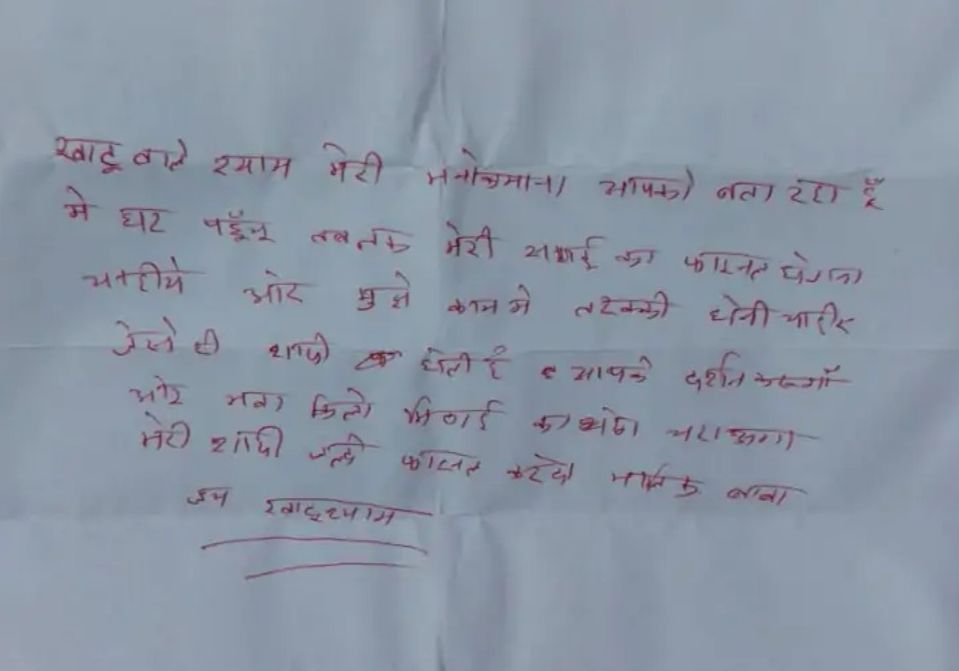 खाटू वाले श्याम मेरी मनोकामना आपको बता रहा हूँ
मे घर पहुँचु तब तक मेरी सगाई का फाइनल होना
चाहीये ओर मुझे काम मे तरक्की होनी चाहीए
जेसे ही शादी होती है आपके दर्शन करूगाँ
ओर सवा किलो मिठाई का भोग चढाऊगा
मेरी शादी जल्दी फाइनल कर दो मालिक बाबा
जय खाटूश्याम